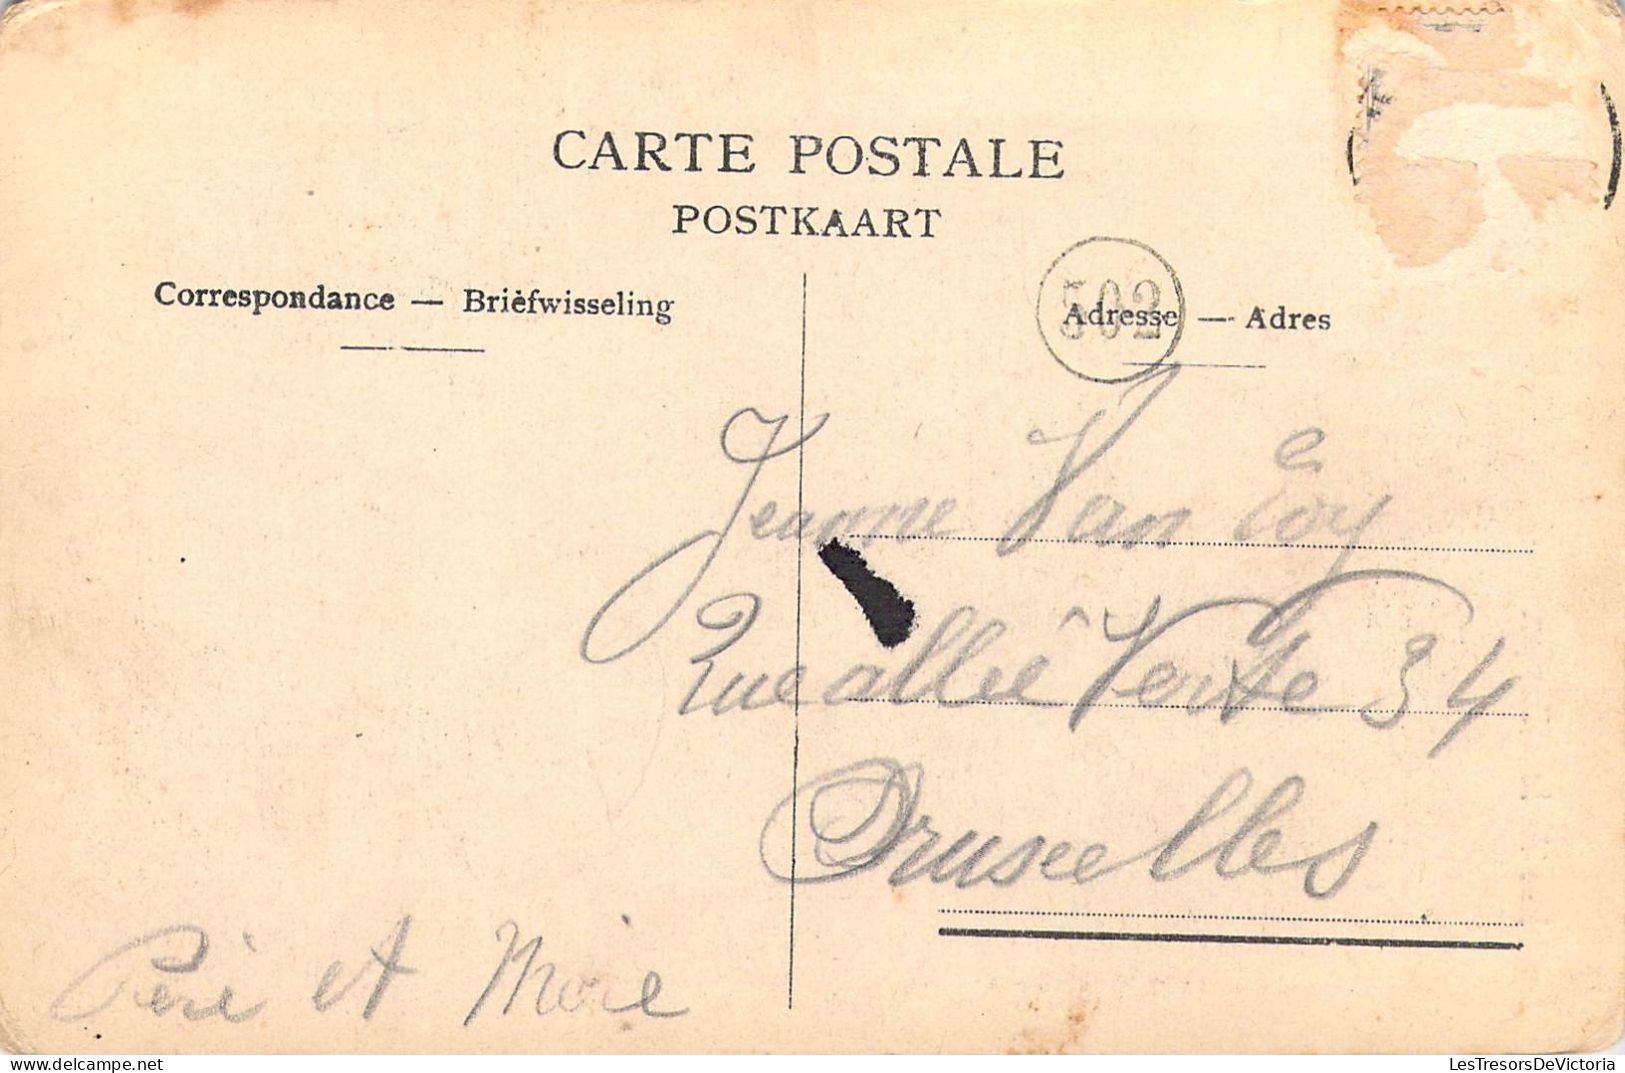 CARTE POSTALE
POSTKAART
Correspondance — Briefwisseling
Adresse — Adres
502
Jeanne Van
Rue allée Verte 34
Bruxelles
Père et Mère
LesTresorsDeVictoria